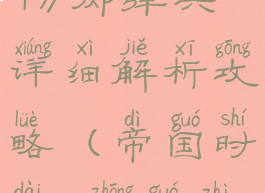 xiáng xì jiě xī gōng
详细解析攻
lüè dì guó shí
略(帝国时
dài zhōng guó zhì